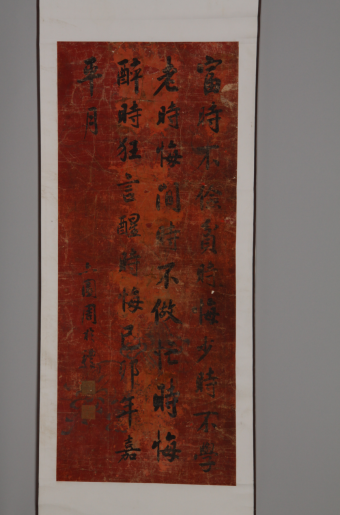 富時不儉貧時悔少時不學
老時悔間時不做忙時悔
醉時狂言醒時悔己卯年嘉
平月
周